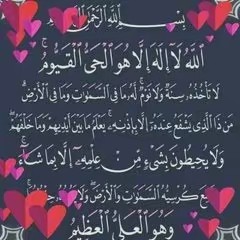 بِسْمِ ٱللَّهِ ٱلرَّحْمَٰنِ
ٱللَّهُ لَآ إِلَٰهَ إِلَّا هُوَ ٱلْحَىُّ ٱلْقَيُّومُ ۚ
لَا تَأْخُذُهُۥ سِنَةٌ وَلَا نَوْمٌ ۚ لَّهُۥ مَا فِى ٱلسَّمَٰوَٰتِ وَمَا فِى ٱلْأَرْضِ ۗ
مَن ذَا ٱلَّذِى يَشْفَعُ عِندَهُۥٓ إِلَّا بِإِذْنِهِۦ ۚ يَعْلَمُ مَا بَيْنَ أَيْدِيهِمْ وَمَا خَلْفَهُمْ ۖ
وَلَا يُحِيطُونَ بِشَىْءٍ مِّنْ عِلْمِهِۦٓ إِلَّا بِمَا شَآءَ ۚ
كُرْسِيُّهُ ٱلسَّمَٰوَٰتِ وَٱلْأَرْضَ ۖ وَلَا
وَهُوَ ٱلْعَلِىُّ ٱلْعَظِيمُ